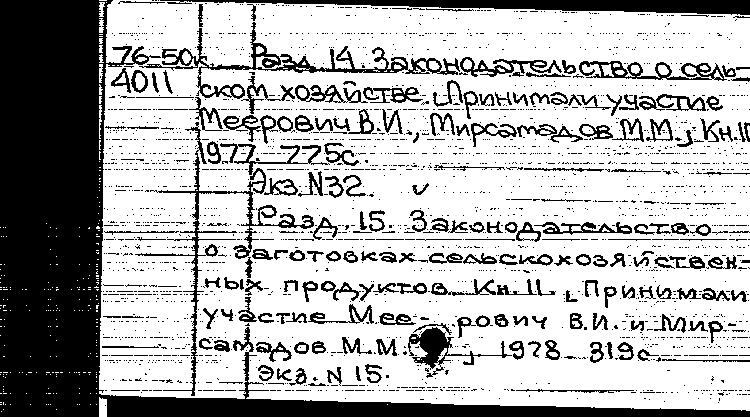 76-50к Разд. 14. Законодательство о сель-
4011 ском хозяйстве. [Принимали участие
Меерович В.И., Мирсамадов М.М.]. Кн. II
1977. 775с.
Экз. N32. v
Разд. 15. Законодательство
о заготовках сельскохозяйствен-
ных продуктов. Кн. II. [Принимали
участие Мее- рович В.И. и Мир-
самадов М.М.] 1978. 319с.
Экз. N 15.